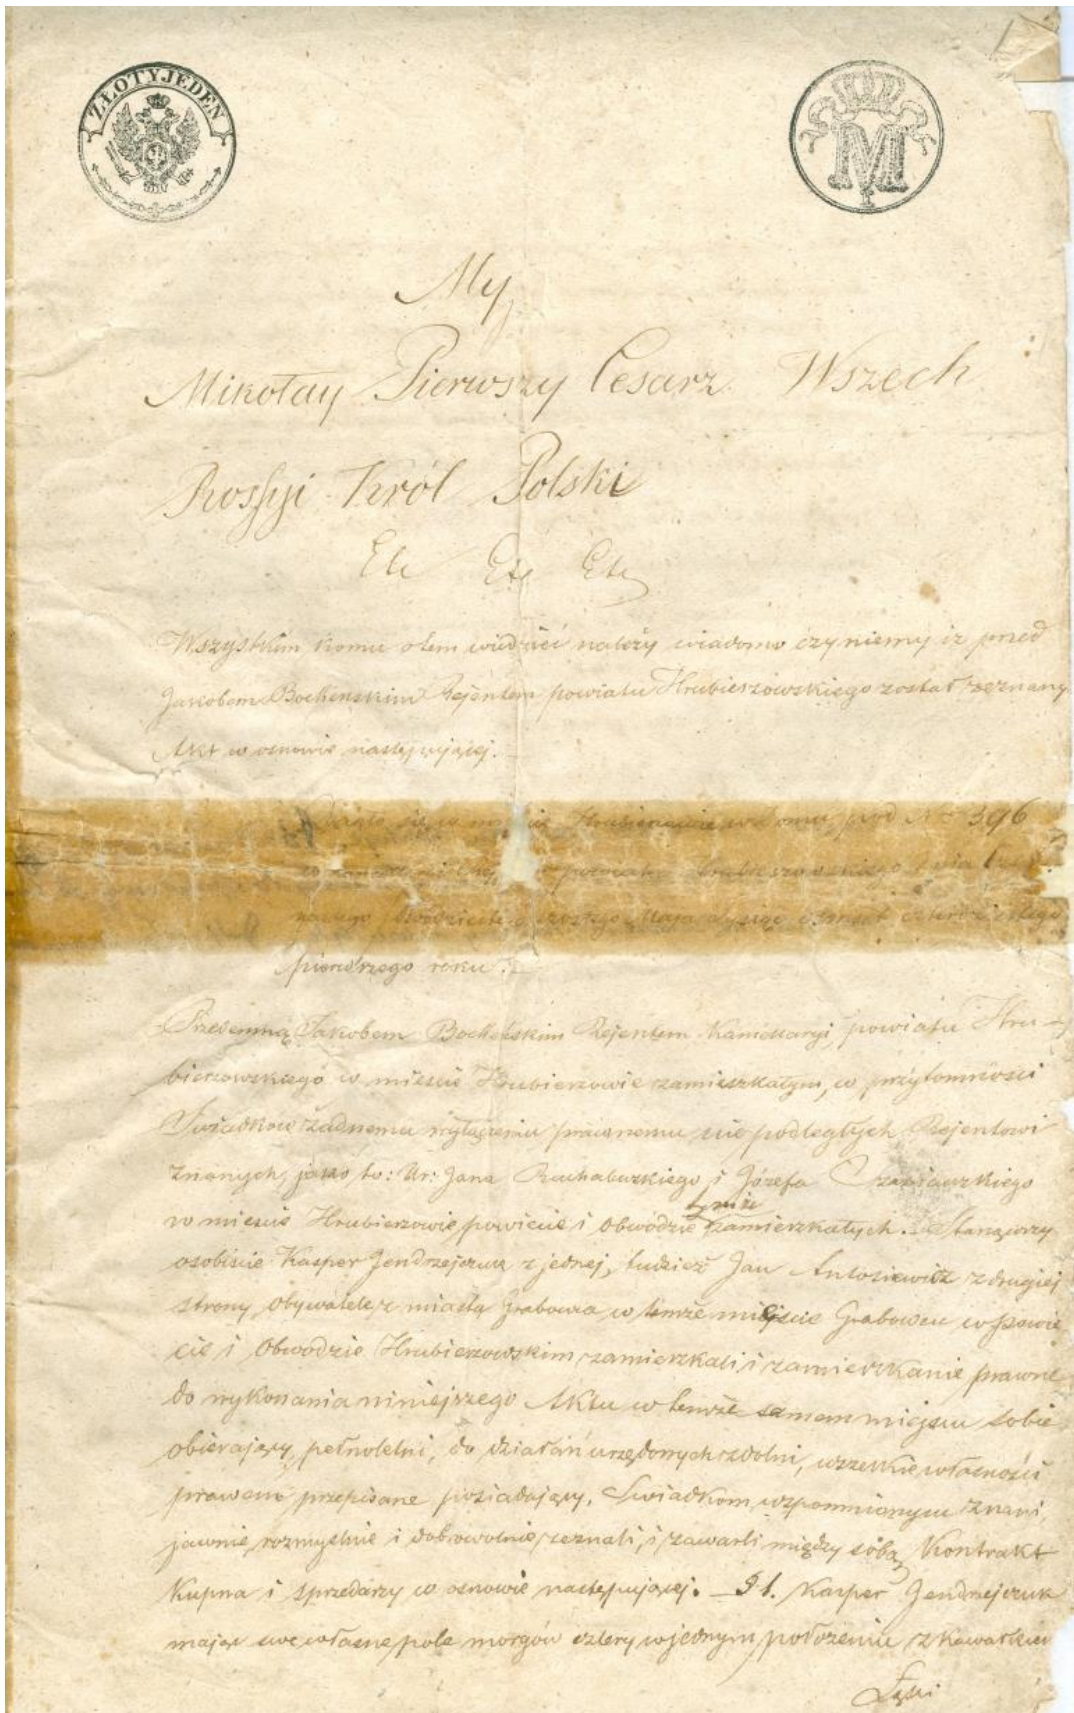 ZŁOTY JEDEN
M
My
Mikołay Pierwszy Cesarz Wszech
Rossyi Król Polski
Etc Etc Etc
Wszystkim komu o tem wiedzieć należy wiadomo czyniemy iż przed
Jakobem Rejentem powiatu Hrubieszowskiego został zeznany
Akt w osnowie następującej.
Działo się w mieście Hrubieszowie w domu pod No 396
w powiatu Hrubieszowskiego dnia
Maja tysiąc ośmset czterdziestego
pierwszego roku.
Przedemną Jakobem Rejentem Kancellaryi powiatu Hru-
bieszowskiego w mieście Hrubieszowie zamieszkałym, w przytomności
Świadków żadnemu wyłączeniu prawnemu nie podległych Rejentowi
znanych, jako to: Ur: Jana i Józefa
w mieście Hrubieszowie, powiecie i obwodzie tymże zamieszkałych. Stanąwszy
osobiście Kasper Jendrzejczuk z jednej, tudzież Jan Antosiewicz z drugiej
strony, obywatele z miasta Grabowca w temże mieście Grabowcu w powie
cie i Obwodzie Hrubieszowskim zamieszkali i zamieszkanie prawne
do wykonania niniejszego Aktu w temże samem miejscu sobie
obierający, pełnoletni, do działań urzędowych zdolni, wszelkie własności
prawem przepisane posiadający, Świadkom wspomnianym znani,
jawnie, rozmyślnie i dobrowolnie zeznali, i zawarli między sobą Kontrakt
Kupna i sprzedarzy w osnowie następującej. § 1. Kasper Jendrzejczuk
mając swe własne pole morgów cztery w jednym położeniu z kawałkiem
Łąki